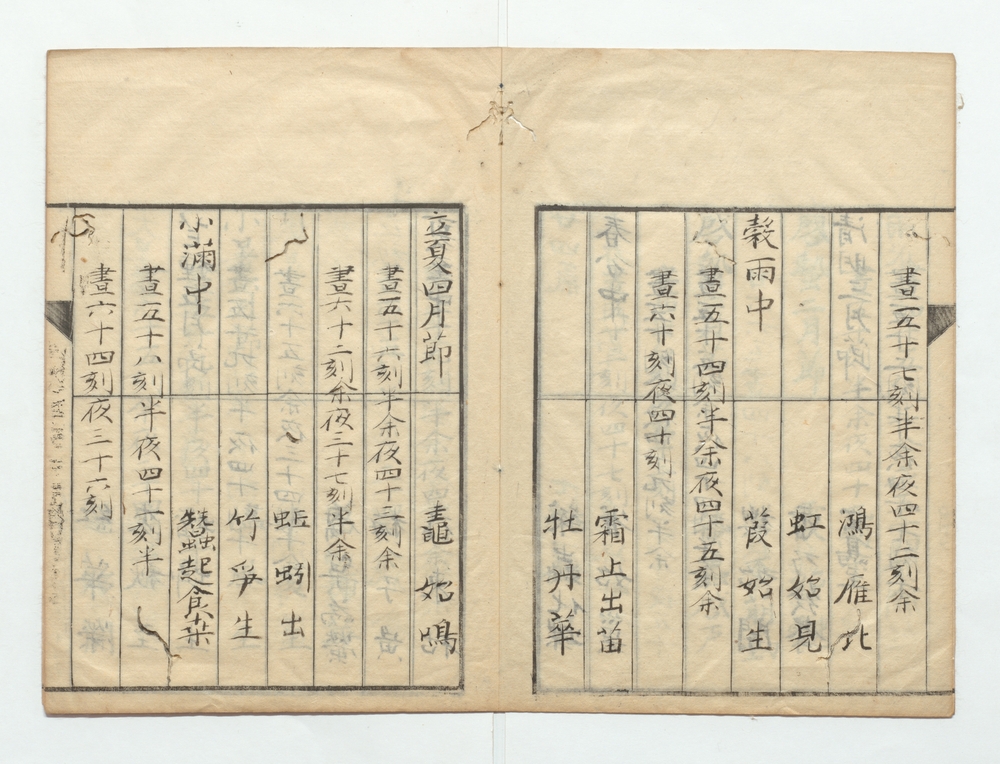 晝五十七刻半余夜四十二刻余
鴻雁北
虹始見
穀雨中 葭始生
晝五十四刻半余夜四十五刻余
晝六十刻夜四十刻
霜止出苗
牡丹華
立夏四月節 鼃始鳴
晝五十六刻半余夜四十三刻余
晝六十二刻余夜三十七刻半余
蚯蚓出
竹笋生
小滿中 蠶起食桒
晝五十八刻半夜四十一刻半
晝六十四刻夜三十六刻